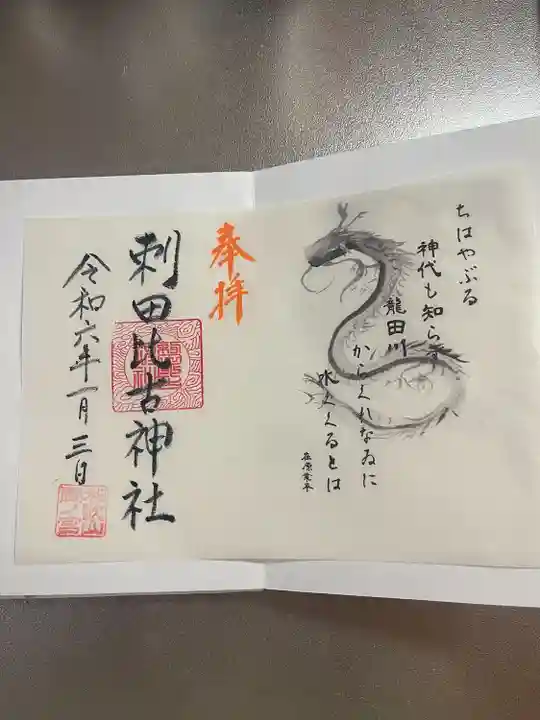 ちはやぶる
神代も知らず
龍田川
からくれなゐに
水くくるとは
在原業平
奉拝
刺田比古神社
令和六年一月三日